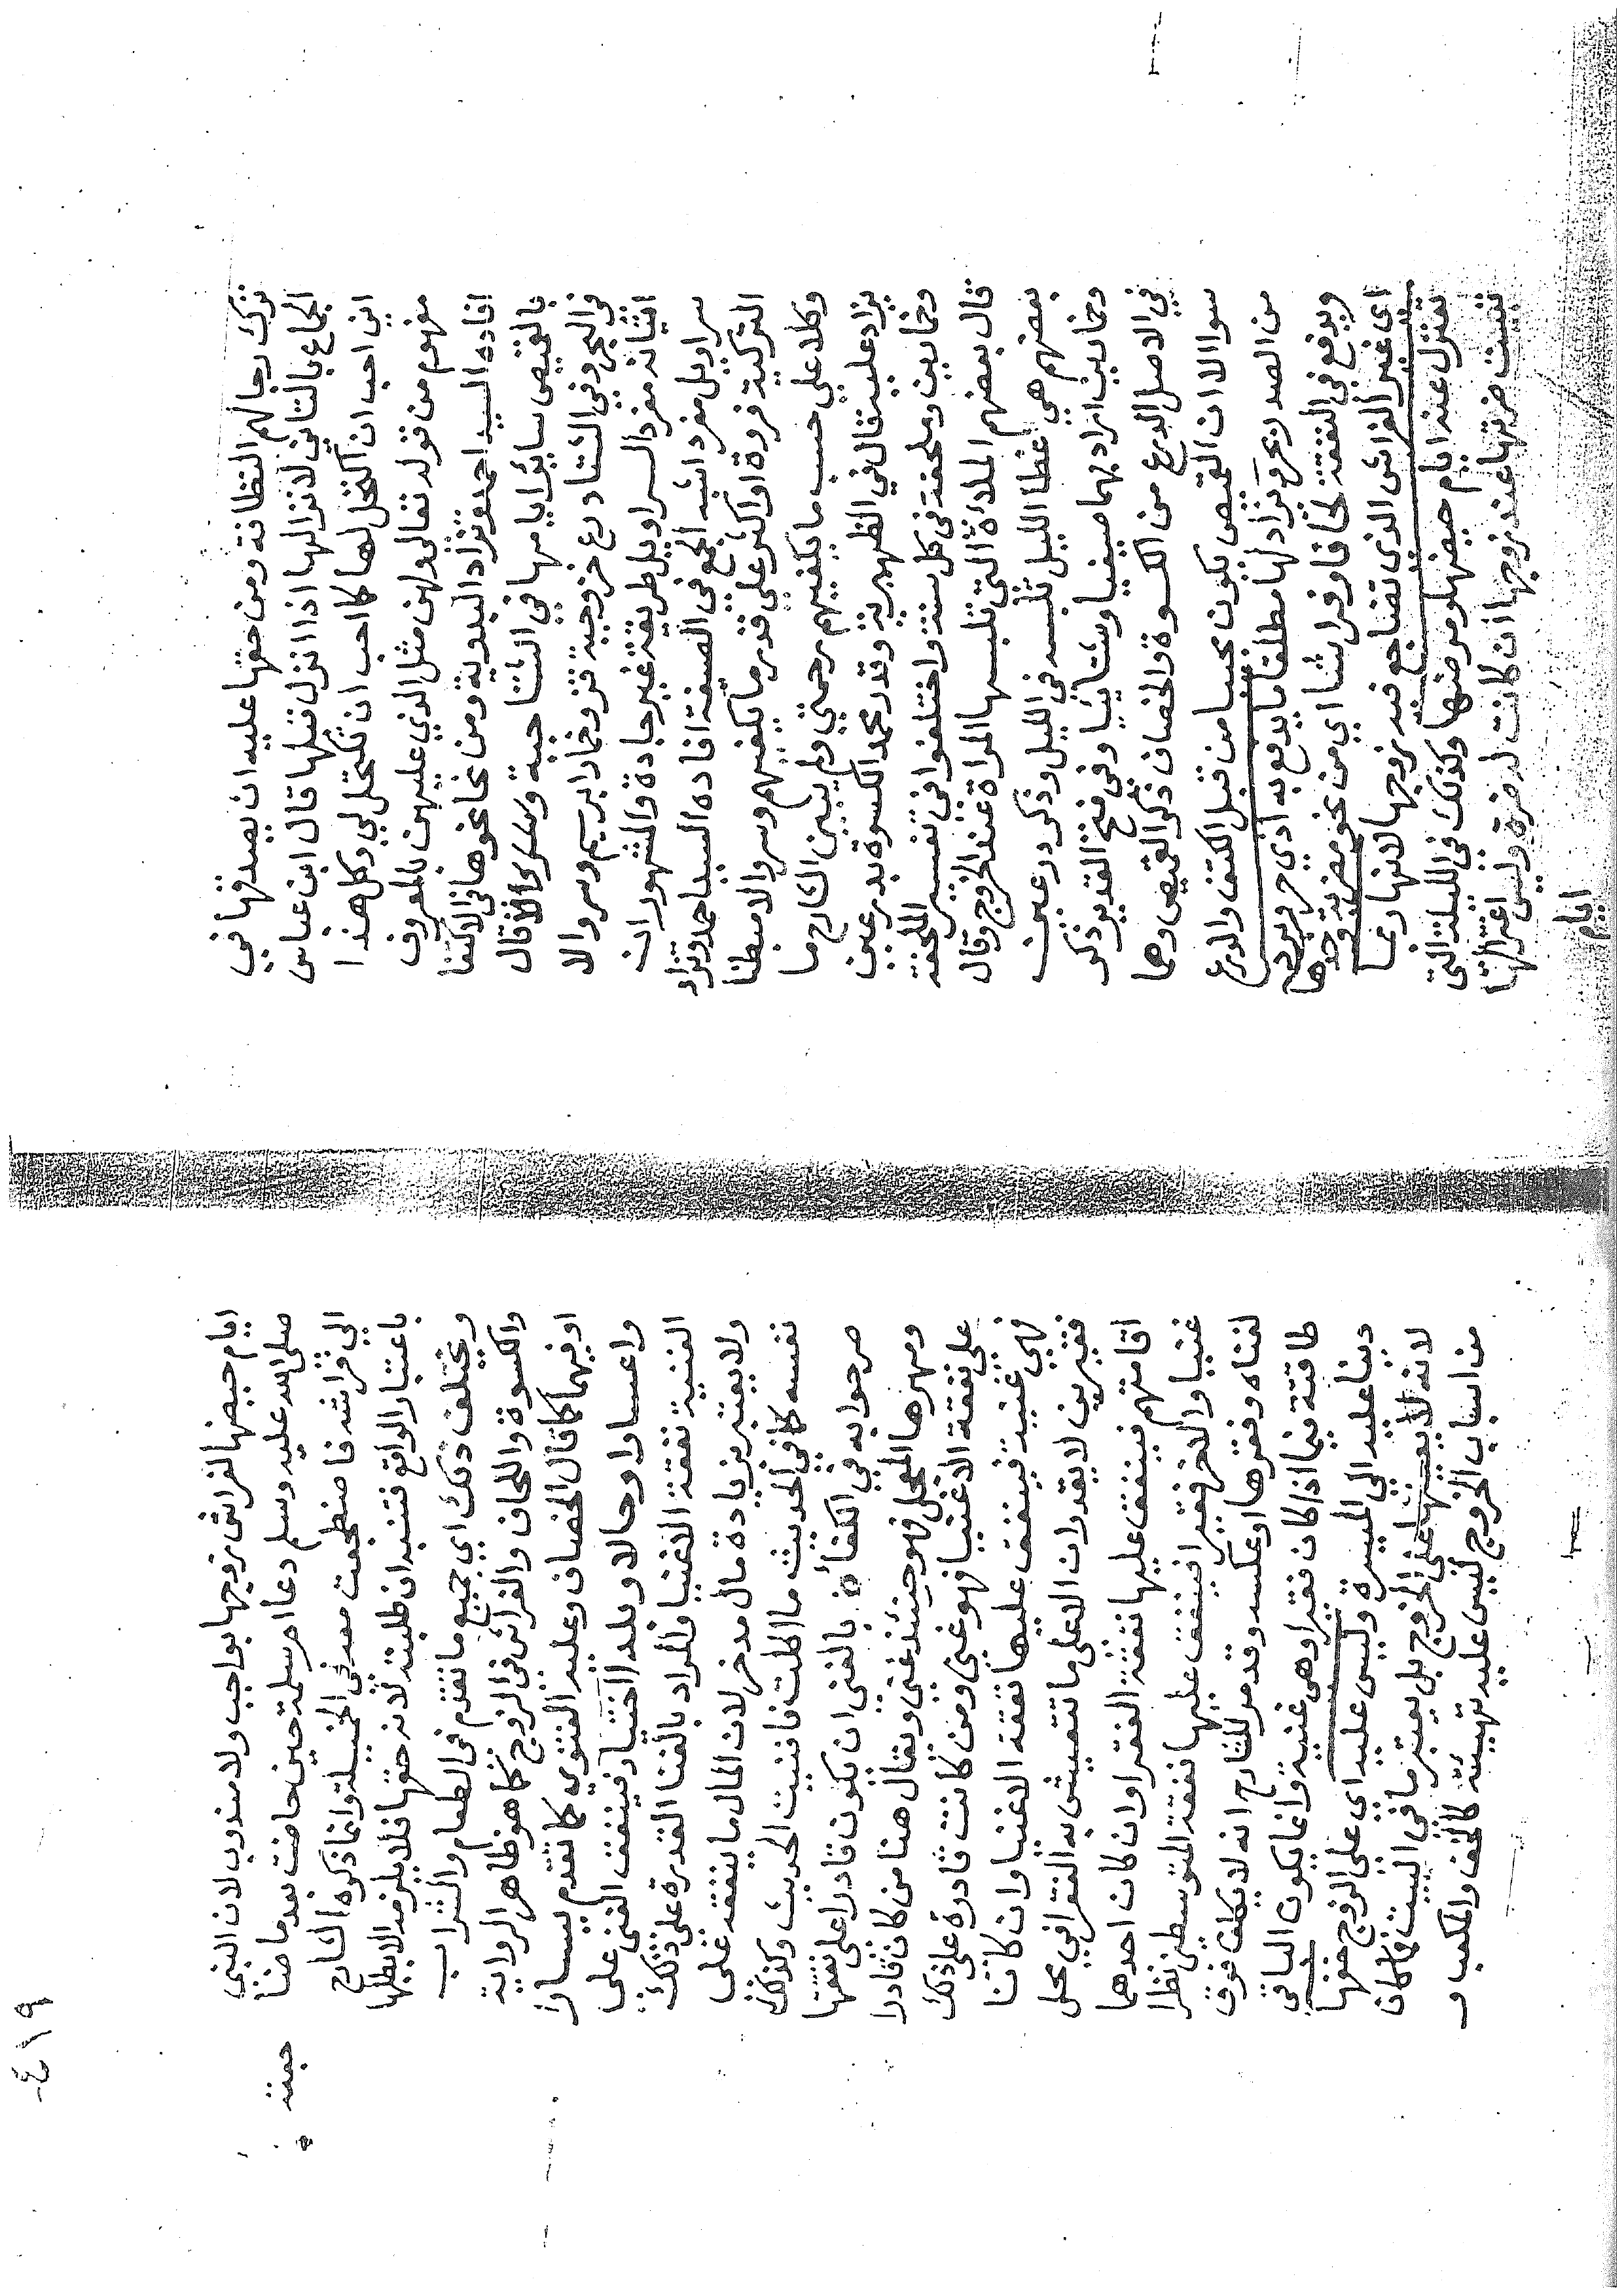 ترك رجالهم النظافة ومن حقها عليه ان يصدقها في
الجماع بالتاني لانزالها اذا انزل قبلها قال ابن عباس
اني احب ان اكتحل لها كما احب ان تكتحل لي وكل هذا
مفهوم من قوله تعالى ولهن مثل الذي عليهن بالمعروف
افاده السيد احمد وتزاد البدوية ومن نحا نحوها في الاكتفا
بالقميص ساير ايامها في الشتا جبة وسروالا قال
في البحر وفي الشتا درع خز وجبة قز وخمار ابريسم وسروالا
اثباته مفرد السراويل طريقة غير جادة والمشهور ان
سراويل مفرد اشبه الجمع في الصيغة افاده السيد احمد وتزاد
التركية فروة او اكثر على قدر ما يكفيهم وسروالا مبطنا
وكلا على حسب ما يكفيهم رحمتي ولم يبين الشارح ما
يزاد عليه قال في الظهيرية وقدر محمد الكسوة بدرعين
وخمارين وملحفة في كل سنة واختلفوا في تفسير الملحفة
قال بعضهم الملاة التي تلبسها المراة عند الخروج وقال
بعضهم هي غطا الليل تلبسه في الليل وذكر درعين
وخمارين اراد بهما صيفيا وشتائيا وفي فتح القدير ذكر
في الاصل الدرع من الكسوة والخصاف ذكر القميص وهما
سوا الا ان القميص يكون مجيبا من قبل الكتف والدرع
من الصدر بحر وتزاد لها مطلقا ما يدفع به اذي حر وبرد
ويدفع في النفقة لحافا وفراشا اي من نحو مضربة وحدها
اي غير الفراش الذي تضاجع فيه زوجها لانها ربما
تعتزل عنه ايام حيضها ومرضها وكذلك في الليلة التي
تبيت ضرتها عند زوجها ان كانت له ضرة وليس اعتزالها
ايام
ايام حيضها لفراش زوجها بواجب ولا مندوب لان النبي
صلى الله عليه وسلم دعا ام سلمة حين حاضت بعد ما مضنا
الي فراشه فاضطجعت معه في الخميلة وانما ذكره الشارح
باعتبار الواقع فتنبه ان طلبته لانه حقها فلا يلزمه الا بطلبها
ويختلف ذلك اي جميع ما تقدم في الطعام والشراب
والكسوة واللحاف والفراش في الزوج كما هو ظاهر الرواية
او فيهما كما قال الخصاف وعليه الفتوي كما تقدم يسارا
واعسارا وحالا وبلدا اختيار فينفق الغني على
الغنية نفقة الاغنيا والمراد بالغنا القدرة على ذلك
ولا يعتبر بزيادة مال مدخر لان المال ما ينفقه على
نفسه كما في الحديث ما اكلت فافنيت الحديث وكذلك
صرحوا به في الكفاة بالغنى ان يكون قادرا على نفقتها
ومهرها المعجل فهو حينئذ غني ويقال هنا من كان قادرا
على نفقة الاغنيا فهو غني ومن كانت قادرة على ذلك
فهي غنية فينفق عليها نفقة الاغنيا وان كانا
فقيرين لا يقدران الا على ما تتعيش به الفقرا في محل
اقامتهم فينفق عليها نفقة الفقرا وان كان احدهما
غنيا والاخر فقيرا فينفق عليها نفقة المتوسطين نظرا
لغناه وفقرها او عكسه وقد مر للشارح انه لا يكلف فوق
طاقته فيما اذا كان فقيرا وهي غنية وانما يكون الباقي
دينا عليه الي الميسرة وليس عليه اي على الزوج خفها
لانه لا يعينها على الخروج بل يعتبر ما في البيت فما كان
من اسباب الخروج ليس عليه تهيئته كالخف والمكعب و
جبة
٤١٩